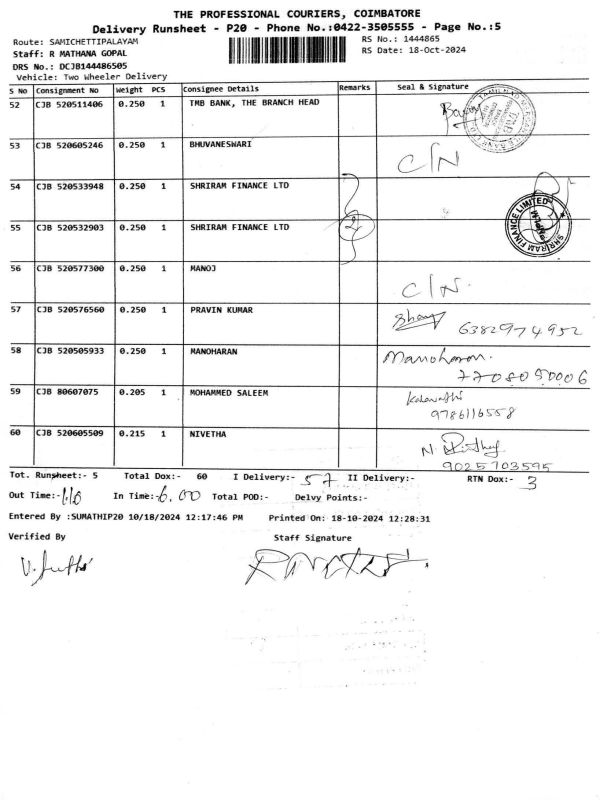 THE PROFESSIONAL COURIERS, COIMBATORE
Delivery Runsheet - P20 - Phone No.:0422-3505555 - Page No.:5
Route: SAMICHETTIPALAYAM RS No.: 1444865
Staff: R MATHANA GOPAL RS Date: 18-Oct-2024
DRS No.: DCJB144486505
Vehicle: Two Wheeler Delivery
S No Consignment No Weight PCS Consignee Details Remarks Seal & Signature
52 CJB 520511406 0.250 1 TMB BANK, THE BRANCH HEAD TMB
53 CJB 520605246 0.250 1 BHUVANESWARI C/N
54 CJB 520533948 0.250 1 SHRIRAM FINANCE LTD
55 CJB 520532903 0.250 1 SHRIRAM FINANCE LTD 2 SHRIRAM FINANCE LIMITED
56 CJB 520577300 0.250 1 MANOJ C/N.
57 CJB 520576560 0.250 1 PRAVIN KUMAR 6382974952
58 CJB 520505933 0.250 1 MANOHARAN Manoharan.
7708050006
59 CJB 80607075 0.205 1 MOHAMMED SALEEM
9786116558
60 CJB 520605509 0.215 1 NIVETHA
9025703595
Tot. Runsheet:- 5 Total Dox:- 60 I Delivery:- 57 II Delivery:- RTN Dox:- 3
Out Time:- 1.10 In Time:- 6.00 Total POD:- Delvy Points:-
Entered By :SUMATHIP20 10/18/2024 12:17:46 PM Printed On: 18-10-2024 12:28:31
Verified By Staff Signature